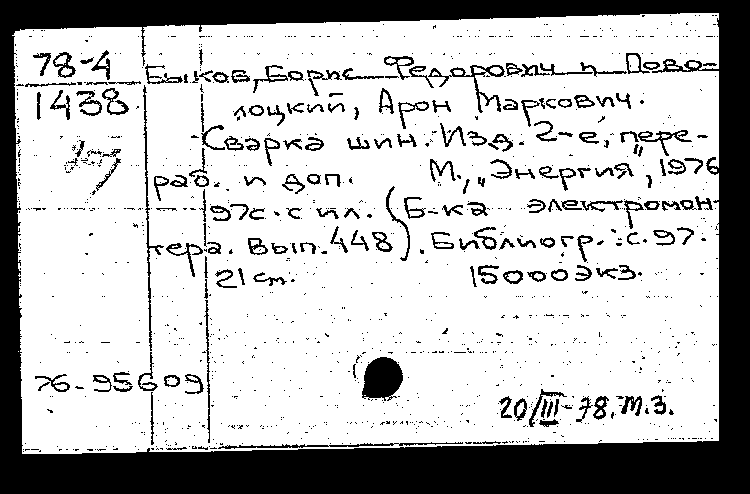 78-4 Быков, Борис Федорович и Пово-
1438 лоцкий, Арон Маркович.
Сварка шин. Изд. 2-е, пере-
раб. и доп. М., „Энергия", 1976
97с. с ил. (Б-ка электромон-
тера. Вып. 448). Библиогр.: с. 97.
21 см. 15000экз.
76-95609
20/III-78. М.З.